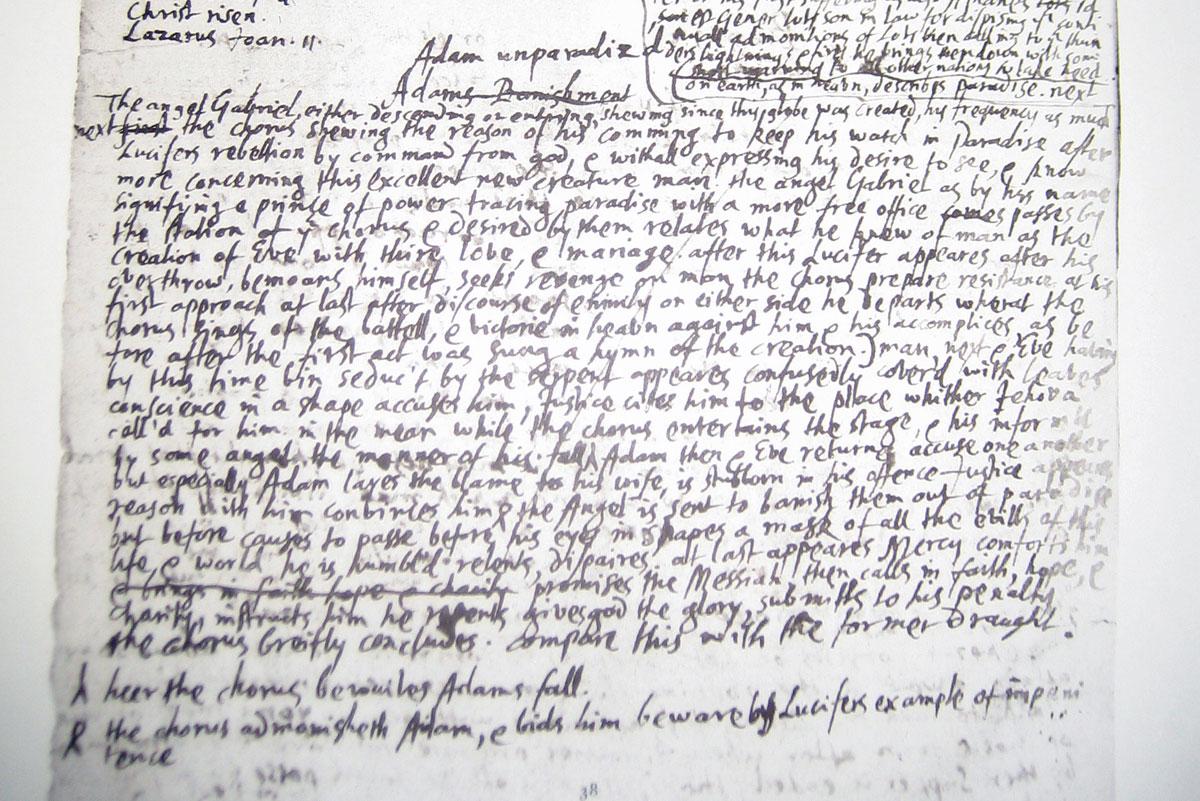 Christ risen.
Lazarus Joan. 11.
Gener Lots son in law for dispising
admonitions of Lots then
lightnings, fires he brings down with som
nations to take heed
on earth, as in heavn, describes paradise. next
Adam unparadiz'd
Adams Banishment
The angel Gabriel, either descending or entring, shewing since this globe was created, his frequency as much
next first the chorus shewing the reason of his comming to keep his watch in Paradise after
Lucifers rebellion by command from god, & withall expressing his desire to see, & know
more concerning this excellent new creature man. the angel Gabriel as by his name
signifying a prince of power tracing paradise with a more free office comes passes by
the station of ye chorus & desired by them relates what he knew of man as the
creation of Eve with thire love, & mariage. after this Lucifer appeares after his
overthrow, bemoans himself, seeks revenge on man the Chorus prepare resistance at his
first approach at last after discourse of enmity on either side he departs wherat the
chorus sings of the battell, & victorie in heavn against him & his accomplices, as be
fore after the first act was sung a hymn of the creation.) man next & Eve having
by this time bin seduc't by the serpent appeares confusedly cover'd with leaves
conscience in a shape accuses him, Justice cites him to the place whither Jehova
call'd for him in the mean while the chorus entertains the stage, & his inform'd
by some angel the manner of his fall Adam then & Eve returne accuse one another
but especially Adam layes the blame to his wife, is stubborn in his offence Justice appeares
reason with him convinces him the Angel is sent to banish them out of paradise
but before causes to passe before his eyes in shapes a mask of all the evills of this
life, & world he is humbl'd relents, dispaires. at last appeares Mercy comforts him
& brings in faith hope & charity promises the Messiah, then calls in faith, hope, &
charity, instructs him he repents gives god the glory, submitts to his penalty
the chorus breifly concludes. compare this with the former draught.
heer the chorus bewailes Adams fall.
the chorus admonisheth Adam, & bids him beware by Lucifers example of impeni
tence
38